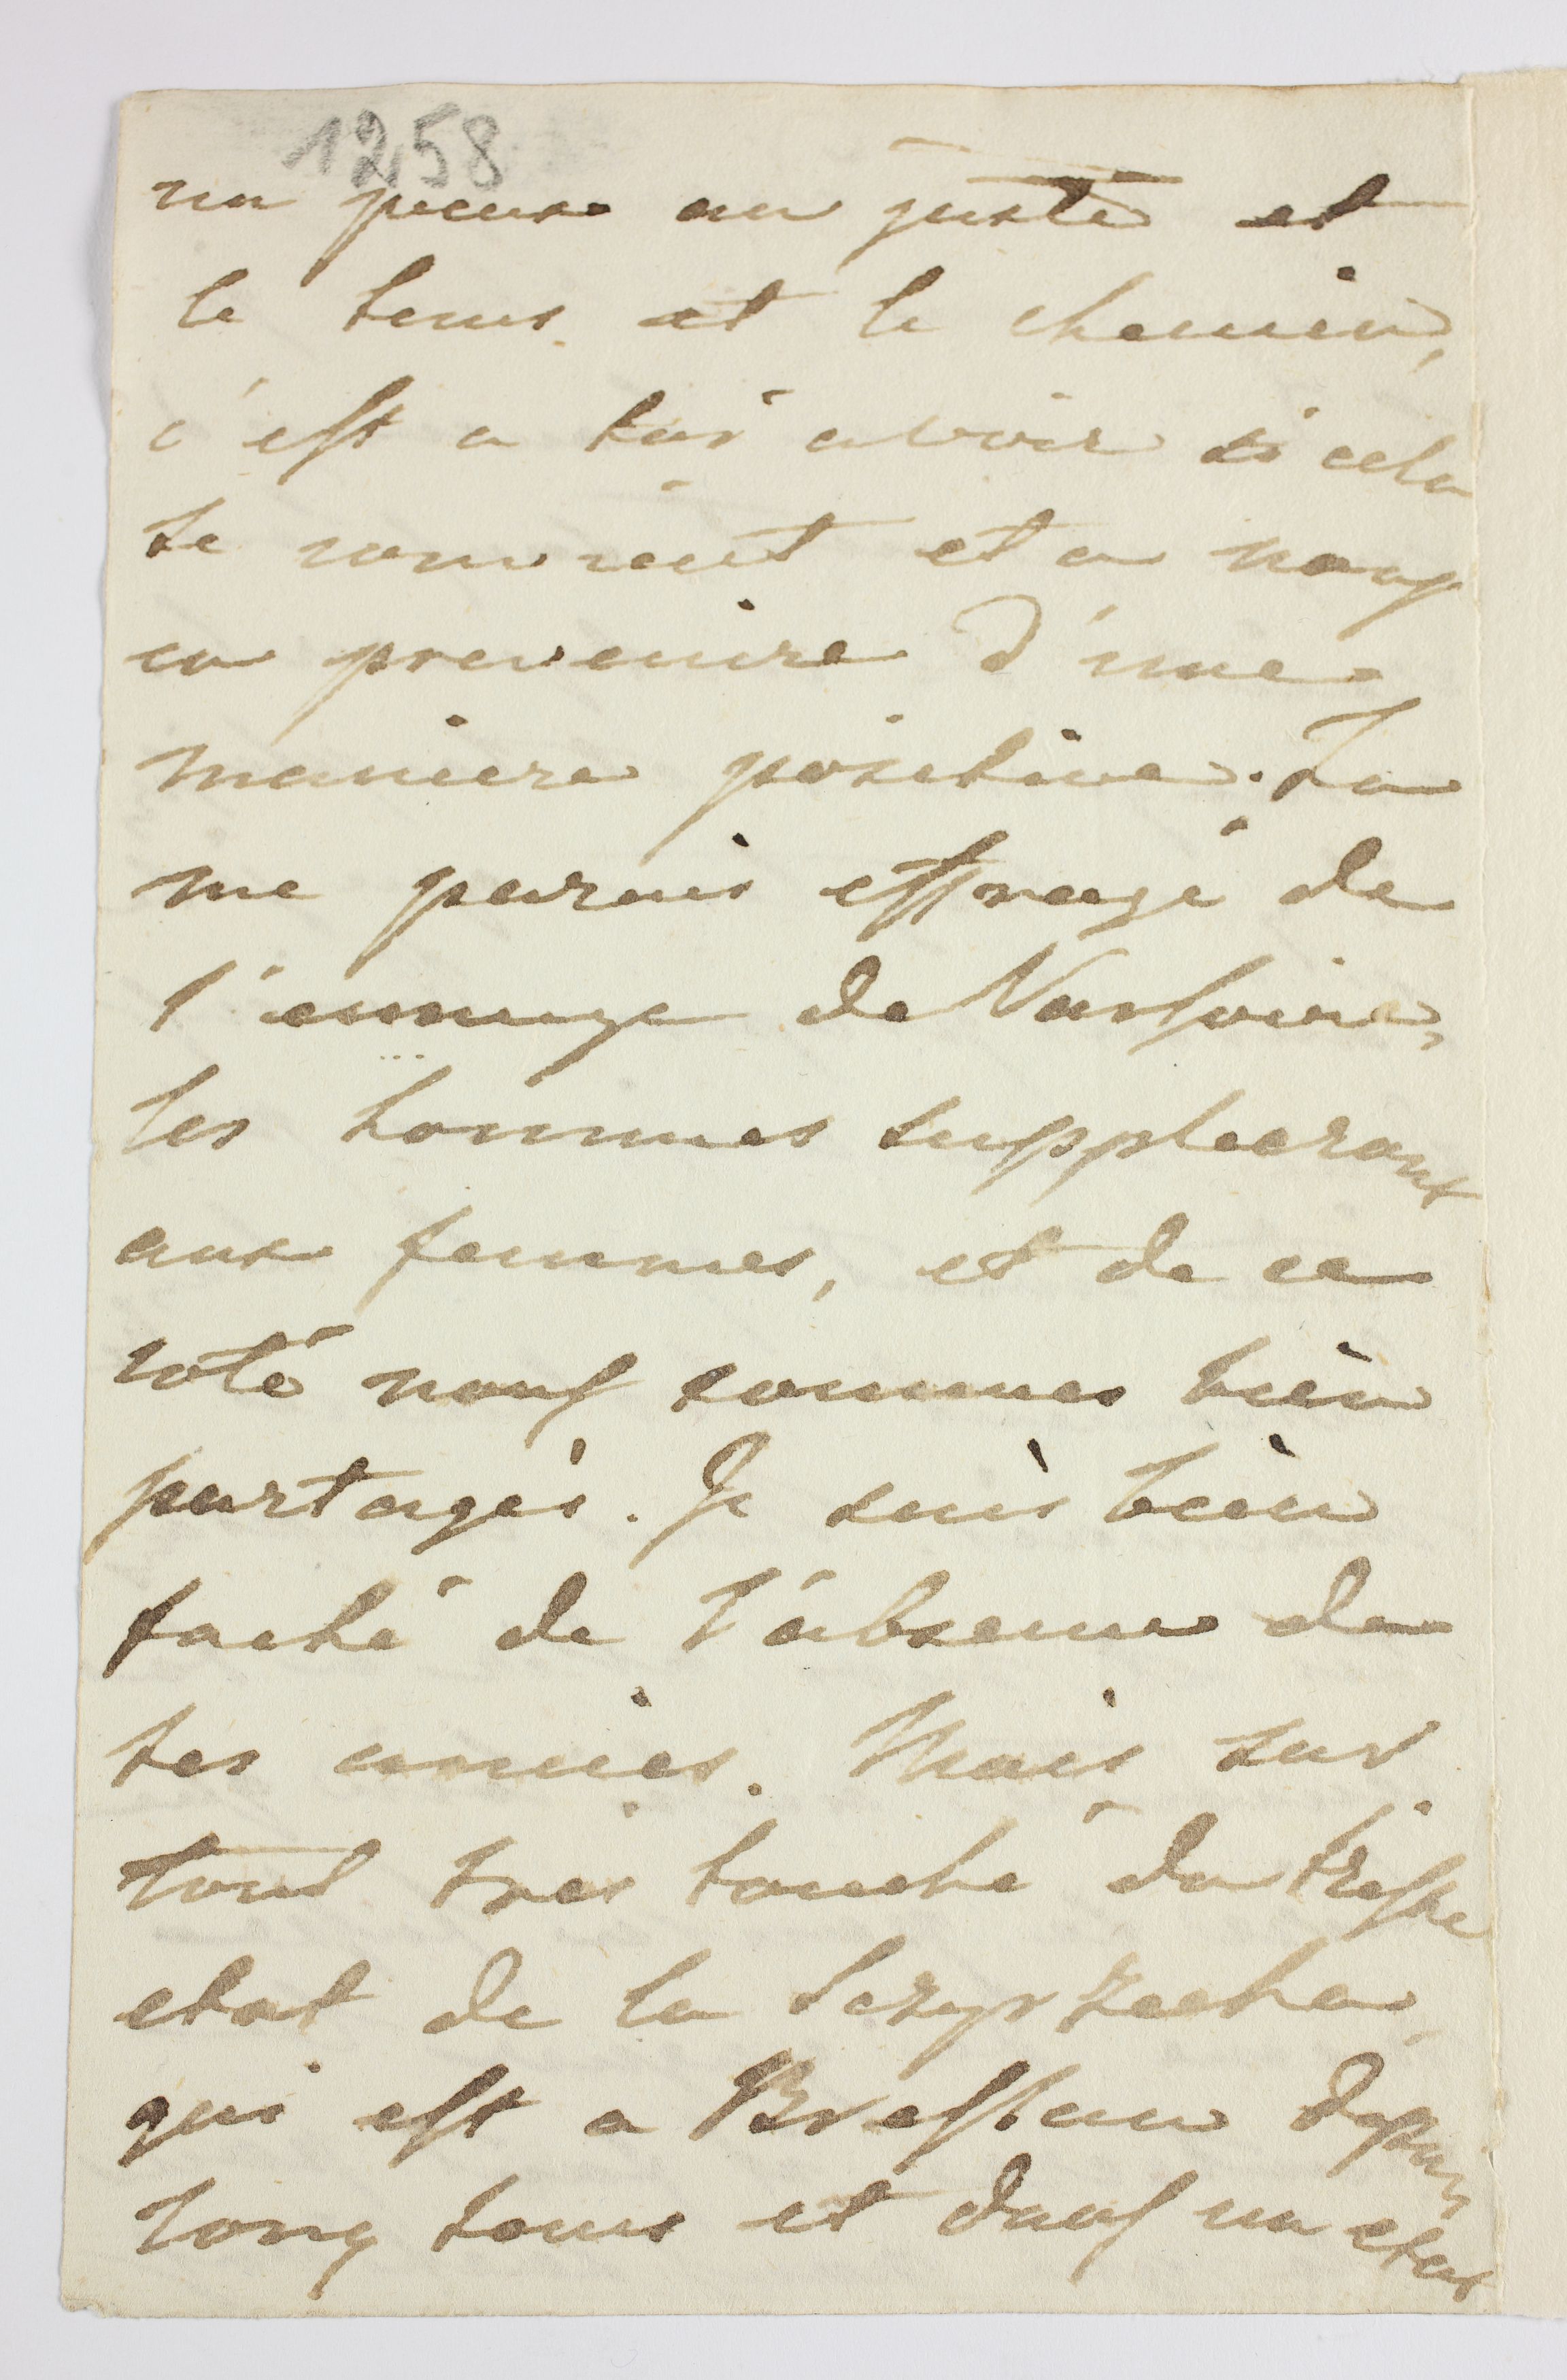 1258
un peux au juste et
le tems et le chemin,
c'est a toi a voir si cela
te convient et a nous
en prevenire d'une
maniere positive. Tu
me parais effrayé de
l'ennuye de Varsovie,
les hommes suppleeront
aux femmes, et de ce
coté nous sommes bien
partagés. Je suis bien
faché de l'absence de
tes amies. Mais sur
tout tres touché du triste
etat de la
qui est a Breslau depuis
long tems et dans un etat